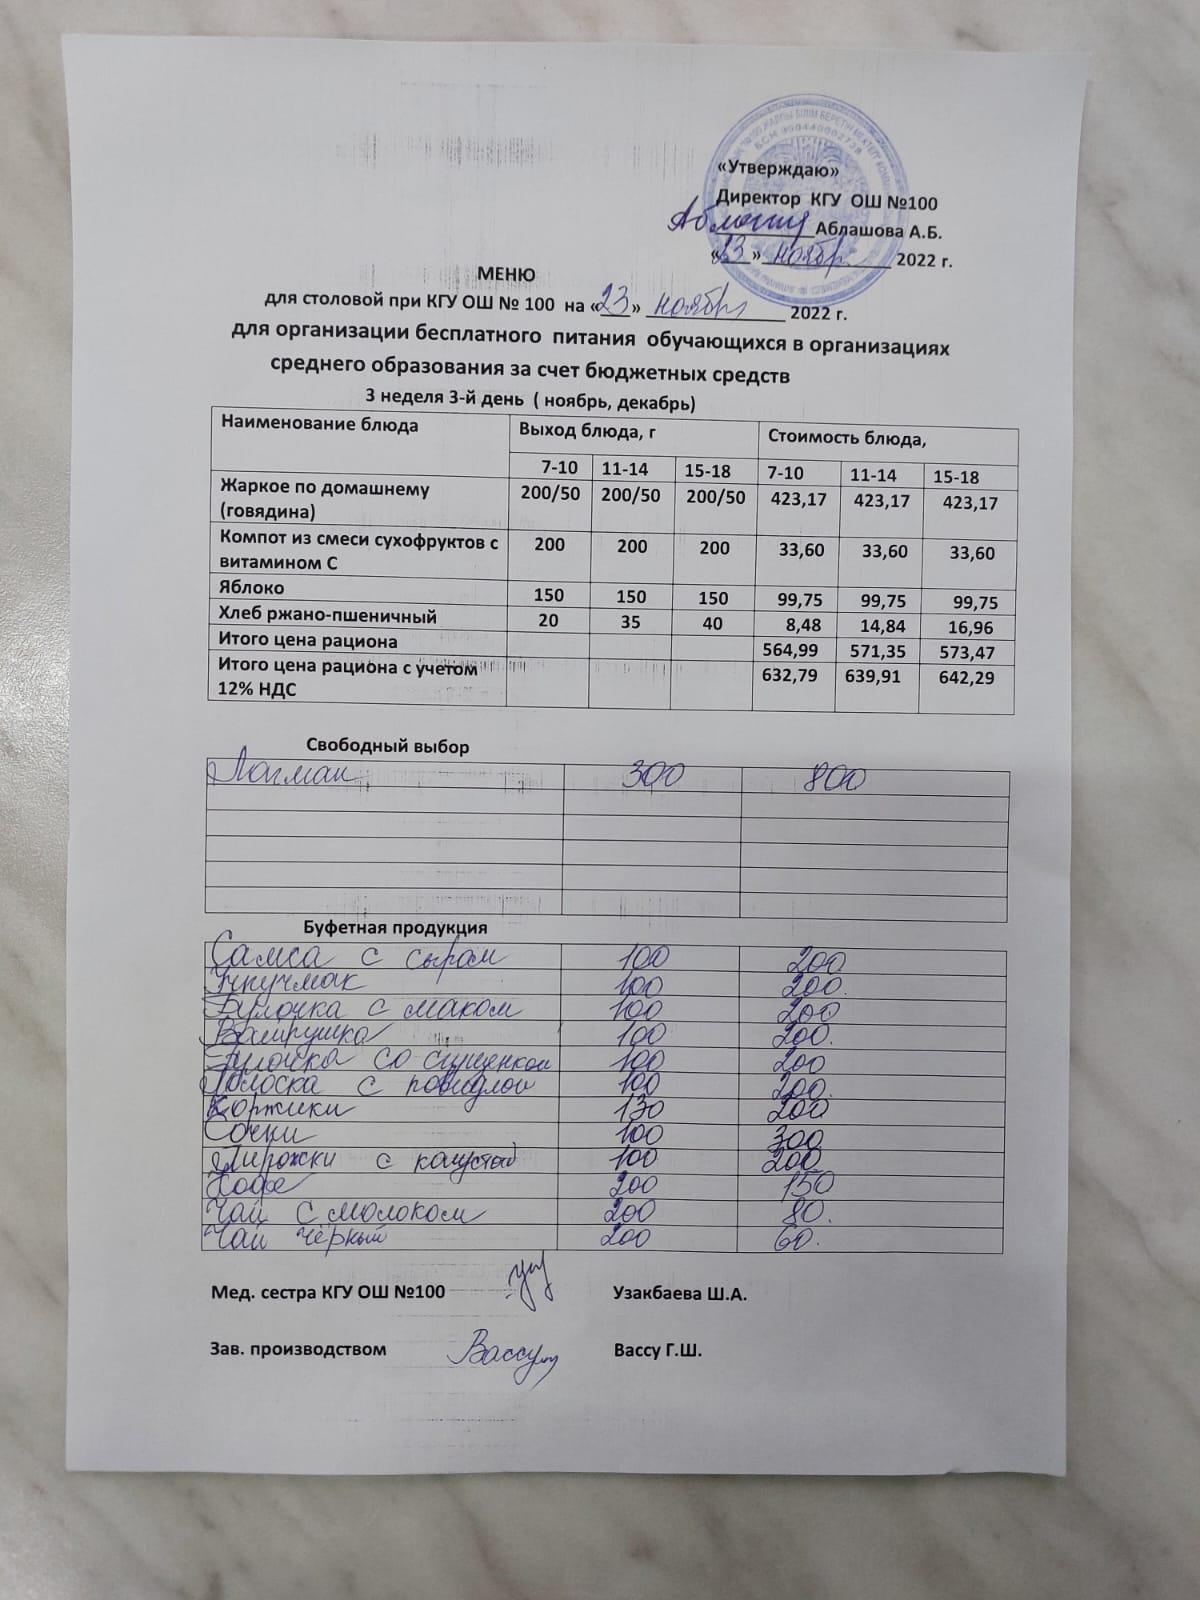 ЖАЛПЫ БІЛІМ БЕРЕТІН МЕКТЕП
БСН 990440002738
«Утверждаю»
Директор КГУ ОШ №100
Аблашова А.Б.
«23» ноябр. 2022 г.
МЕНЮ
для столовой при КГУ ОШ № 100 на «23» ноября 2022 г.
для организации бесплатного питания обучающихся в организациях
среднего образования за счет бюджетных средств
3 неделя 3-й день ( ноябрь, декабрь)
Наименование блюда Выход блюда, г Стоимость блюда,
7-10 11-14 15-18 7-10 11-14 15-18
Жаркое по домашнему 200/50 200/50 200/50 423,17 423,17 423,17
(говядина)
Компот из смеси сухофруктов с 200 200 200 33,60 33,60 33,60
витамином С
Яблоко 150 150 150 99,75 99,75 99,75
Хлеб ржано-пшеничный 20 35 40 8,48 14,84 16,96
Итого цена рациона 564,99 571,35 573,47
Итого цена рациона с учетом 632,79 639,91 642,29
12% НДС
Свободный выбор
Лагман 300 800
Буфетная продукция
Самса с сыром 100 200
100 200.
Булочка с маком 100 200
Ватрушка 100 200.
Булочка со сгущенкой 100 200
Полоска с повидлой 100 200.
Коржики 130 200
Сочни 100 300
Пирожки с капустой 100 200
Кофе 200 150
Чай с молоком 200 80.
Чай чёрный 200 60.
Мед. сестра КГУ ОШ №100 Узакбаева Ш.А.
Зав. производством Вассу Вассу Г.Ш.